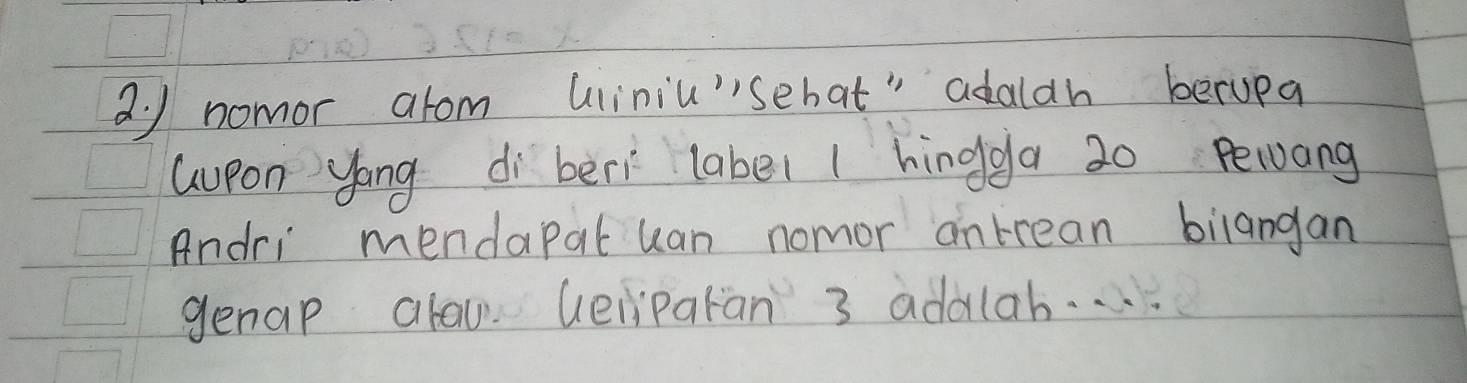 2.) nomor atom klinik "sehat" adalah berupa
kupon yang di beri label 1 hingga 20 Pewang
Andri mendapat kan nomor antrean bilangan
genap atau kelipatan 3 adalah.....